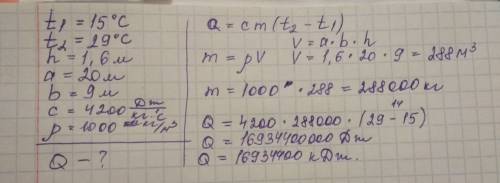 t₁ = 15°C
t₂ = 29°C
h = 1,6 м
a = 20 м
b = 9 м
c = 4200 Дж/кг·°C
ρ = 1000 кг/м³
Q - ?
Q = cm(t₂ - t₁)
V = a·b·h
m = ρV V = 1,6 · 20 · 9 = 288 м³
m = 1000 · 288 = 288000 кг
14
Q = 4200 · 288000 · (29 - 15)
Q = 16934400000 Дж
Q = 16934400 кДж.